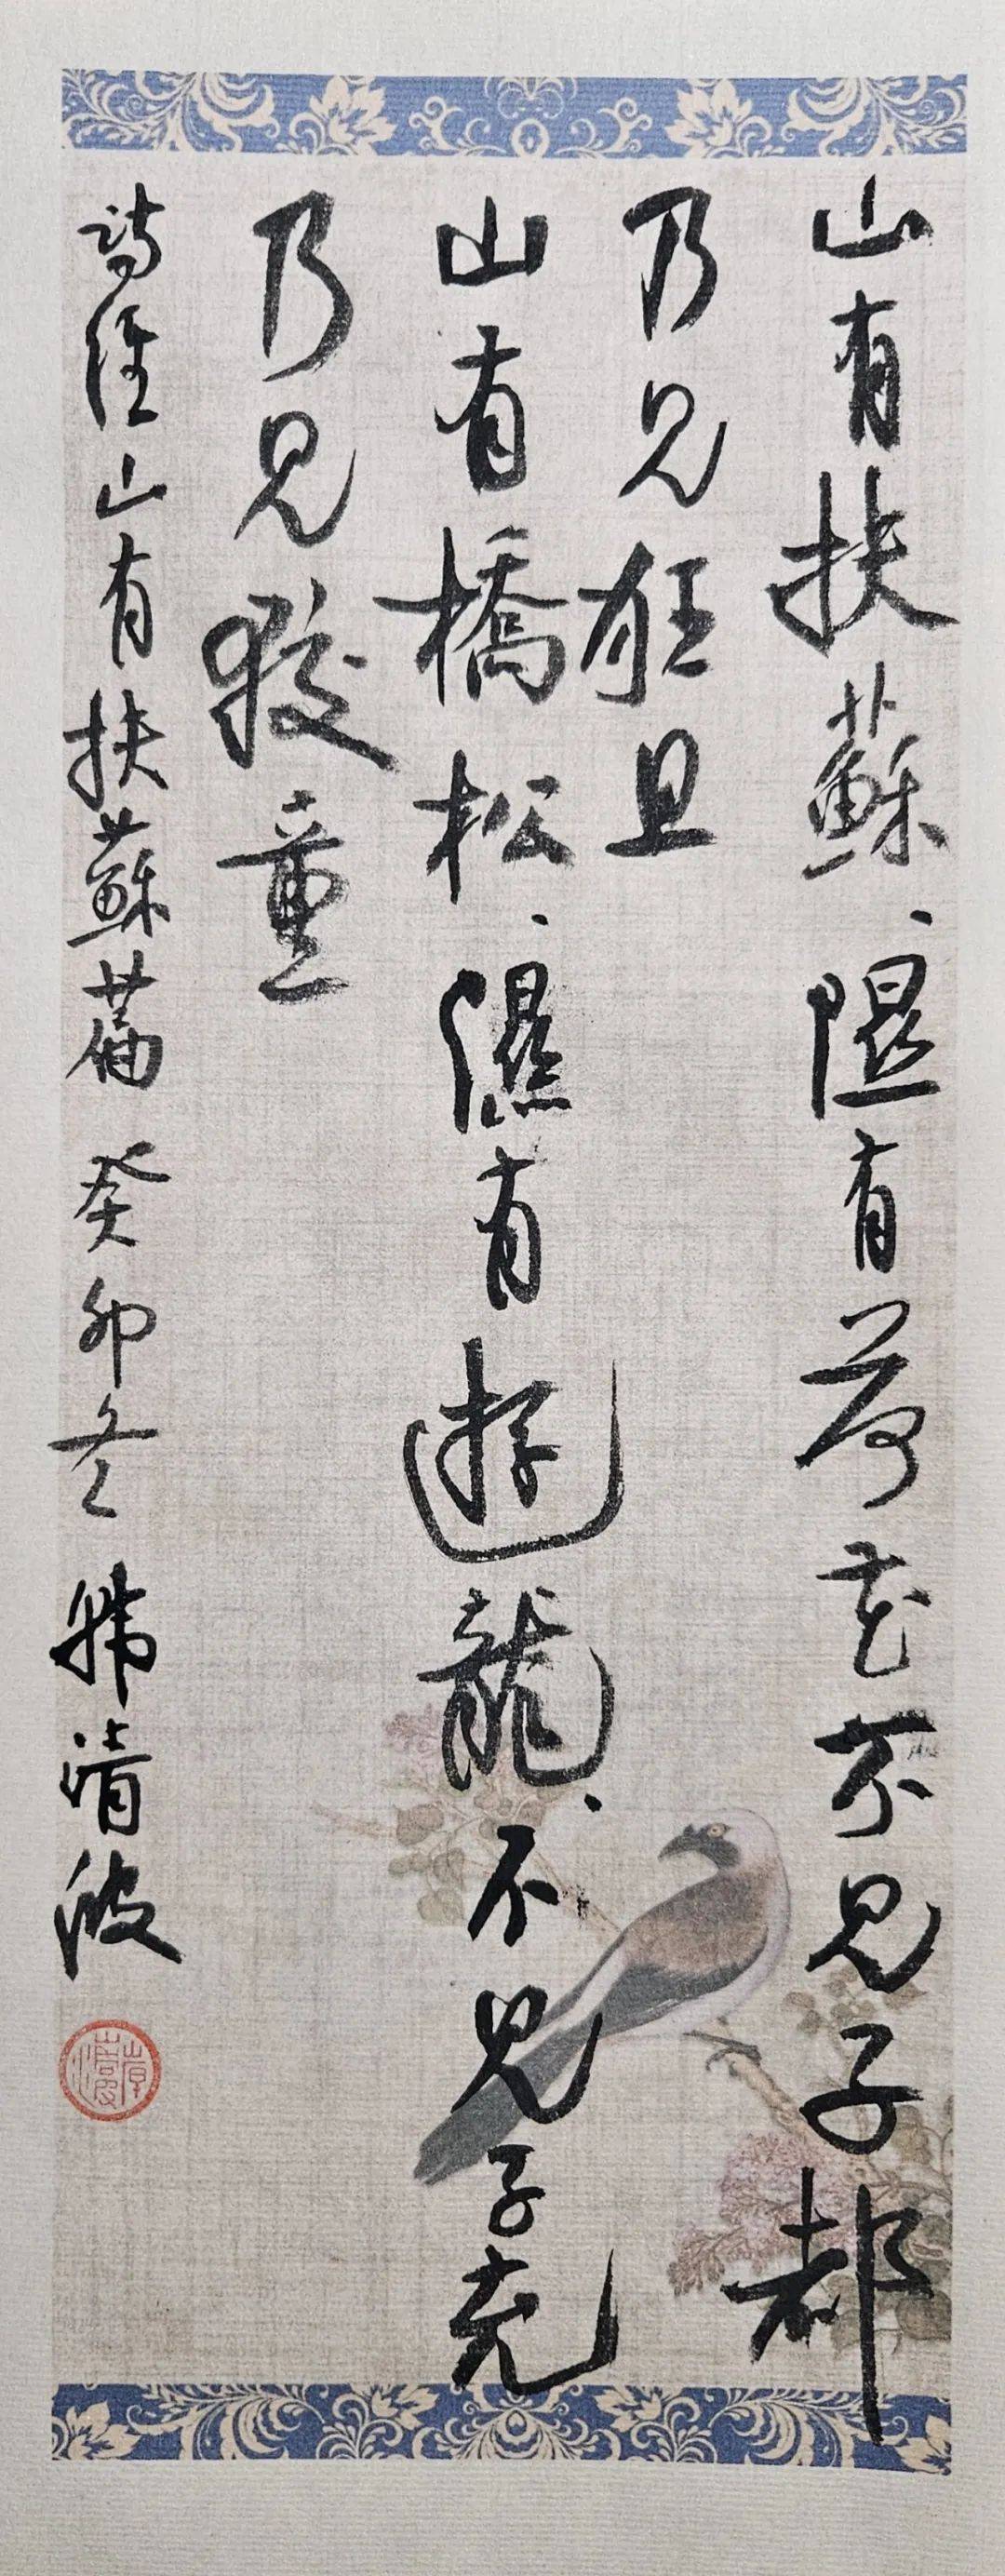 山有扶蘇、隰有荷花不見子都
乃見狂且
山有橋松、濕有遊龍、不見子充
乃見狡童
詩經山有扶蘇篇 癸卯冬 韩清波